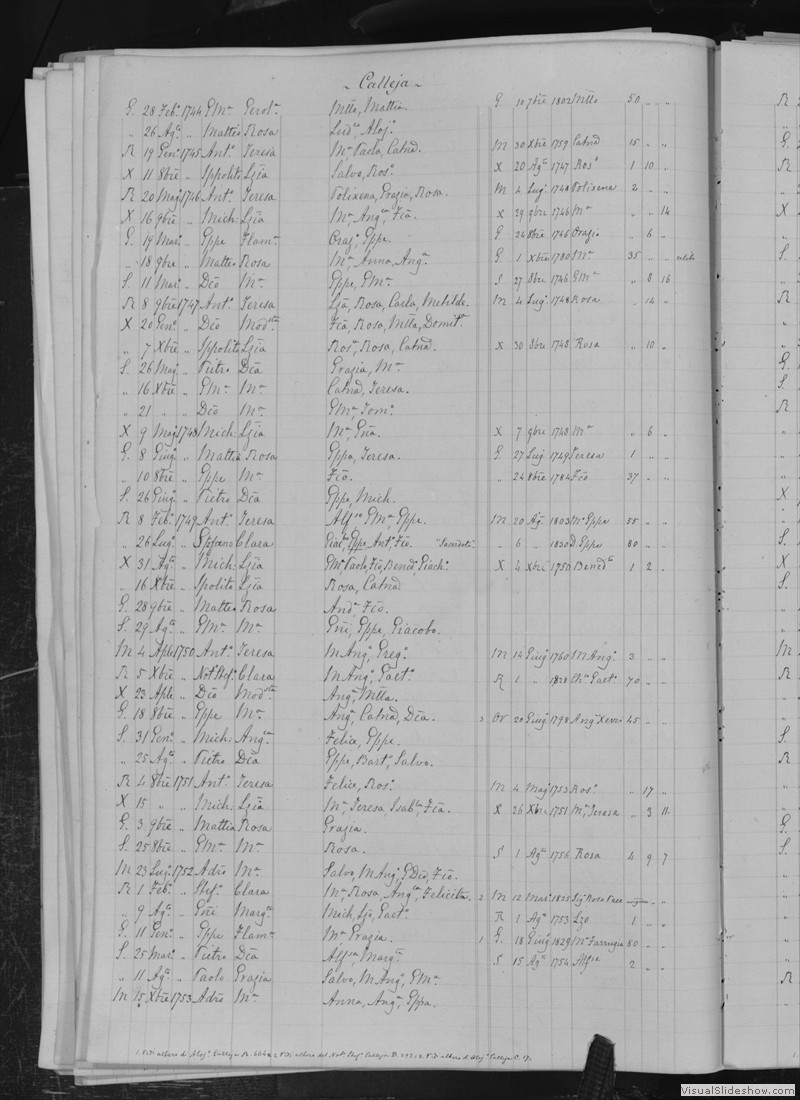 ~ Calleja ~
G. 28 Feb.º 1744 Gmª Gerolª Mtto, Mattia G 10 7bre 1802 Mtto 50 " "
" 26 Agº " Mattia Rosa Aloj.
R 19 Genº 1745 Antº Teresa Mª Paola, Catnd. M 30 Xbre 1759 Catnd 15 " "
X 11 8bre " Ippolito Lzia Salvo, Rosº X 20 Agº 1747 Rosº 1 10 "
R 20 Mag 1746 Antº Teresa Polixena, Grazia, Rosa. M 4 Lug 1748 Polixena 2 " "
X 16 9bre " Mich. Lzia Mª Angª, X 29 9bre 1746 Mª " " 14
G. 19 Marº " Gppe Flamª Orazº, Gppe. G 24 8bre 1746 Orazio " 6 "
" 18 9bre " Mattia Rosa Mª, Anna, Angª G. 1 Xbre 1780 Mª 35 " "
S. 11 Marº " Dio Mª Gppe, Gmª S 27 8bre 1746 Gmª " 8 16
R 8 9bre 1747 Antº Teresa Lzia, Rosa, Carla, Metilde. M 4 Lug 1748 Rosa " 14 "
X 20 Genº " Dio Modsta Rosa, Mtta, Domitª
" 7 Xbre " Ippolito Lzia Rosª, Rosa, Catnd. X 30 8bre 1748 Rosa " 10 "
S. 26 Mag " Pietro Dia Grazia, Mª
" 16 Xbre " Gmª Mª Catnd, Teresa.
" 21 " " Dio Mª Gmª, Tomº
X 9 Mag 1748 Mich. Lzia Mª, X 7 9bre 1748 Mª " 6 "
G. 8 Giug " Mattia Rosa Gppa, Teresa. G. 27 Lug 1749 Teresa 1 " "
" 10 8bre " Gppe Mª Fio. " 24 8bre 1784 Fio 37 " "
S. 26 Giug " Pietro Dia Gppe, Mich.
R 8 Febº 1749 Antº Teresa Gmª, Gppe. M 20 Agº 1803 Mª Gppe 55 " "
" 26 Lug " Stefano Clara Giacº, Gppe, Antº, Fio. "Sacerdote " 6 " 1830 D. Gppe 80 " "
X 31 Agº " Mich. Lzia Gmª Paolo, Fio, Bened, Giachº X 4 Xbre 1750 Bened 1 2 "
" 16 Xbre " Ipolito Lzia Rosa, Catnd
G. 28 9bre " Mattia Rosa Andº Fio.
S. 29 Agº " Gmª Mª Gppe, Giacobo.
M 4 Aple 1750 Antº Teresa M Angª, Gregº M 14 Giug 1760 M Angº 3 " "
R 5 Xbre " Notº Stefº Clara M Angº, Gaetº R 1 " 1828 Gaetº 70 " "
X 23 Aple " Dio Modsta Angª, Mtta.
G. 18 8bre " Gppe Mª Angª, Catnd, Dia. 3 Or 20 Giug 1798 Angª 45 " "
S. 31 Genº " Mich. Angª Felice, Gppe.
" 25 Agº " Pietro Dia Gppe, Bartº, Salvo.
R 4 8bre 1751 Antº Teresa Felice, Rosº. M 4 Mag 1753 Rosº " 17 "
X 15 " " Mich. Lzia Mª, Teresa, Isabª, X 26 Xbre 1751 Mª Teresa " 3 11
G. 3 9bre " Mattia Rosa Grazia.
S. 25 8bre " Gmª Mª Rosa. S 1 Agº 1756 Rosa 4 9 7
M 23 Lug 1752 Adrº Mª Salvo, M Angº, G Dio, Fio.
R 1 Febº " Stefº Clara Mª, Rosa, Angª, Felicita. 2 M 12 Marº 1825 Rosa
" 9 Agº " Margª Mich, Lzo, Gaetº R 1 Agº 1753 Lzo 1 " "
G. 11 Genº " Gppe Flamª Mª Grazia. 1 G. 18 Giug 1829 Mª Farrugia 80 " "
S. 25 Marº " Pietro Dia Margª S 15 Agº 1754 2 " "
" 11 Agº " Paolo Grazia Salvo, M Angº, Gmª.
M 15 Xbre 1753 Adrº Mª Anna, Angª, Gppa.
1. Vdi albero di Alojº Calleja 2 Vdi albero del Notº Stefº Calleja 3. Vdi albero d'Alojº Calleja C. 17.
VisualSlideshow.com